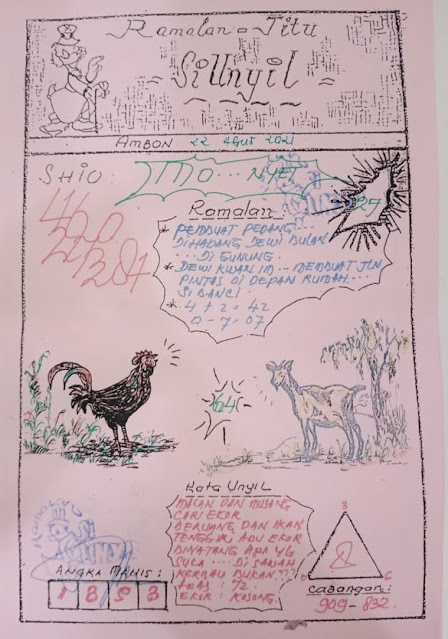 Ramalan = Jitu
= SiUnyil =
AMBON 22 Agus 2021
SHIO :
MO ... NYET
29
Ramalan
* PEMBUAT PEDANG
DIHADANG DEWI BULAN
... DI GUNUNG.
* DEWI KWAN IM .. MEMBUAT JLN
PINTAS DI DEPAN RUMAH ...
SI BANCI
* 4 + 2 = 42
0 - 7 - 07
64
Kata Unyil
MACAN DAN MUSANG
CARI EKOR
BERUANG DAN IKAN
TENGGIRI ADU EKOR
BINATANG APA YG
SUKA .... DI SAWAH
KERBAU BUKAN ???
EKOR : KOSONG.
ANGKA MANIS :
1 8 5 3
3
2
0 6
Cabangan :
909 - 832.